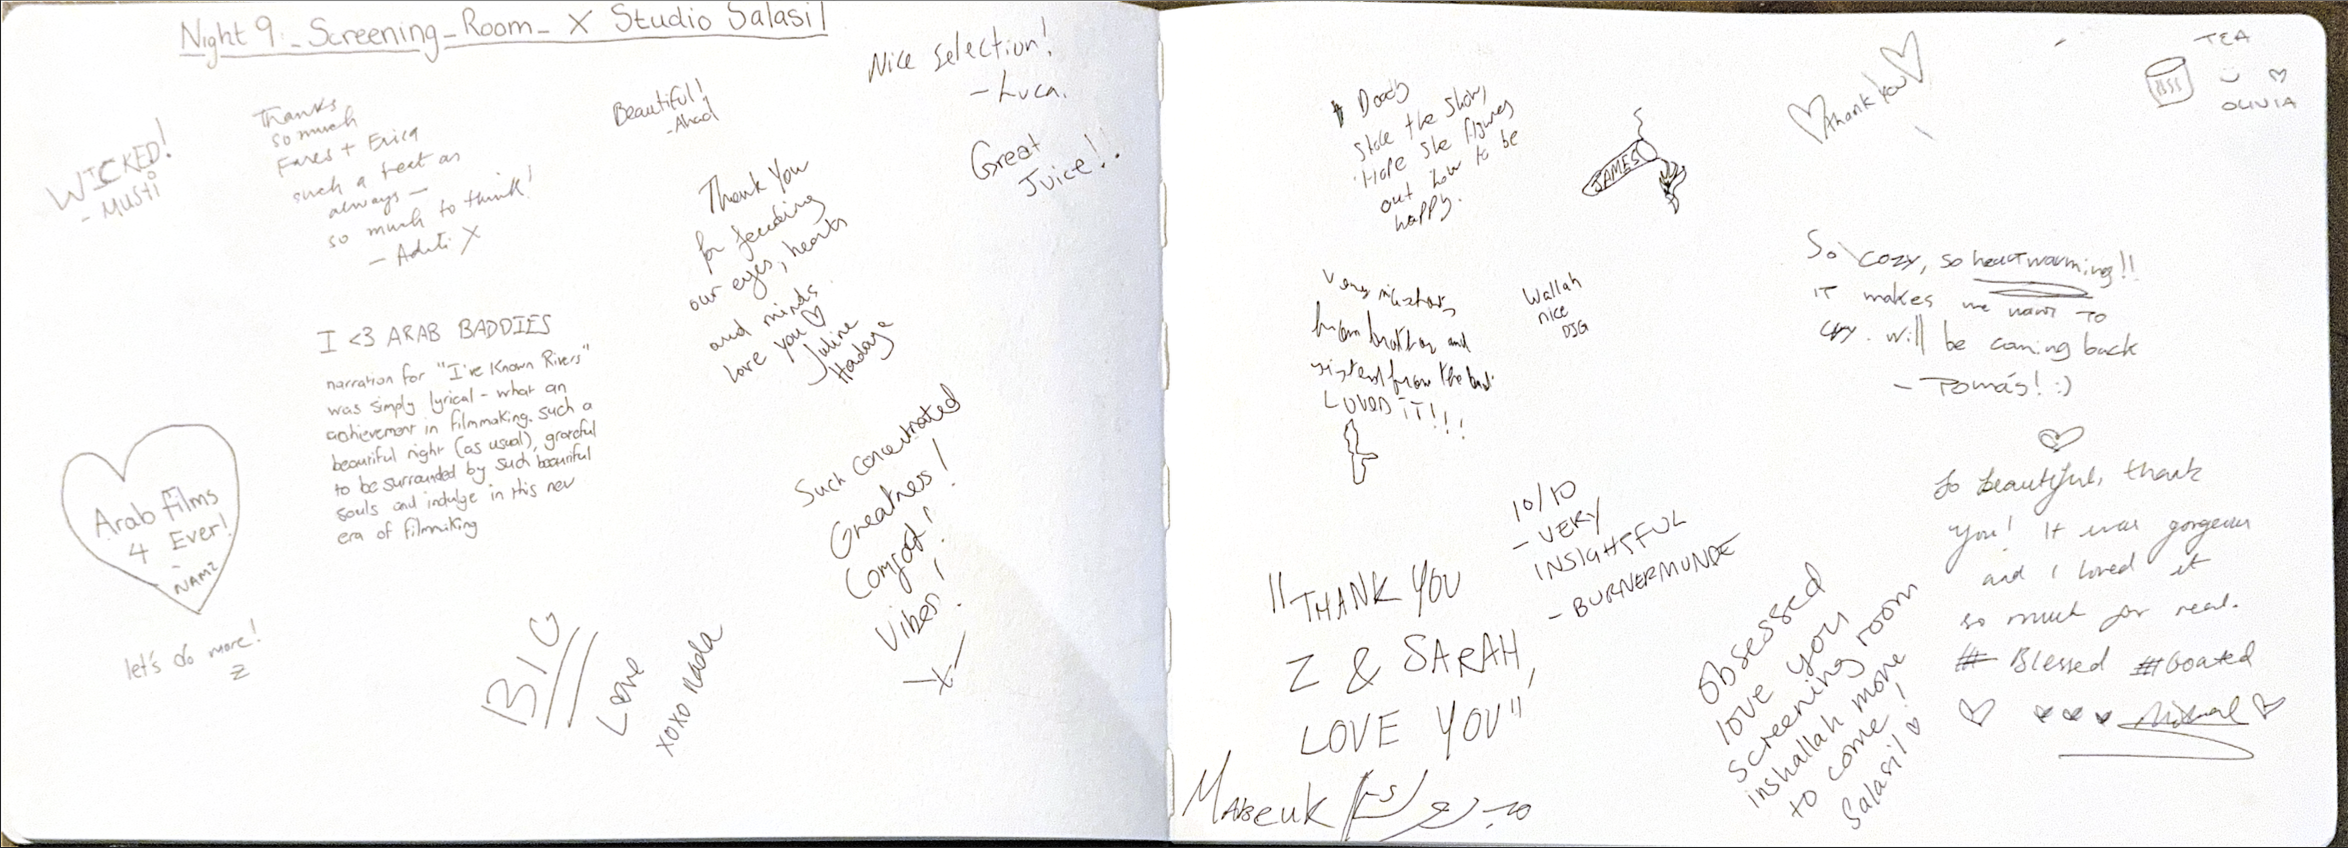 Night 9 - Screening - Room - X Studio Salasil
WICKED!
- MUSTi
Thanks
so much
Fares + Erica
such a treat as
always —
so much to think!
- Aditi X
Beautiful!
- Ahad
Nice selection!
- Luca.
Great
Juice!!
Thank You
for feeding
our eyes, hearts
and minds.
love you ♡
Juline
Hadaya
I <3 ARAB BADDIES
narration for "I've Known Rivers"
was simply lyrical - what an
achievement in filmmaking. such a
beautiful night (as usual), grateful
to be surrounded by such beautiful
souls and indulge in this new
era of filmmiking
Arab films
4 Ever!
- NAMZ
let's do more!
Z
Such concentrated
Greatness!
Comfort!
Vibes!
BIG
Love
xoxo nada
Doody
Stole the show,
Hope she figures
out how to be
happy.
JAMES
♡ thank you ♡
TEA
♡
OLIVIA
very
from brother and
from the
LOVED iT!!!
Wallah
nice
DJG
So cozy, so heartwarming!!
IT makes me want TO
cry. will be coming back
- Tomás! :)
10/10
- VERY
INSIGHTFUL
- BURNERMUNDE
"THANK YOU
Z & SARAH,
LOVE YOU"
Mabeuk
obsessed
love you
screening room
inshallah more
to come!
Salasil ♡
♡
So beautiful, thank
you! It was gorgeous
and I loved it
so much for real.
# Blessed #Goated